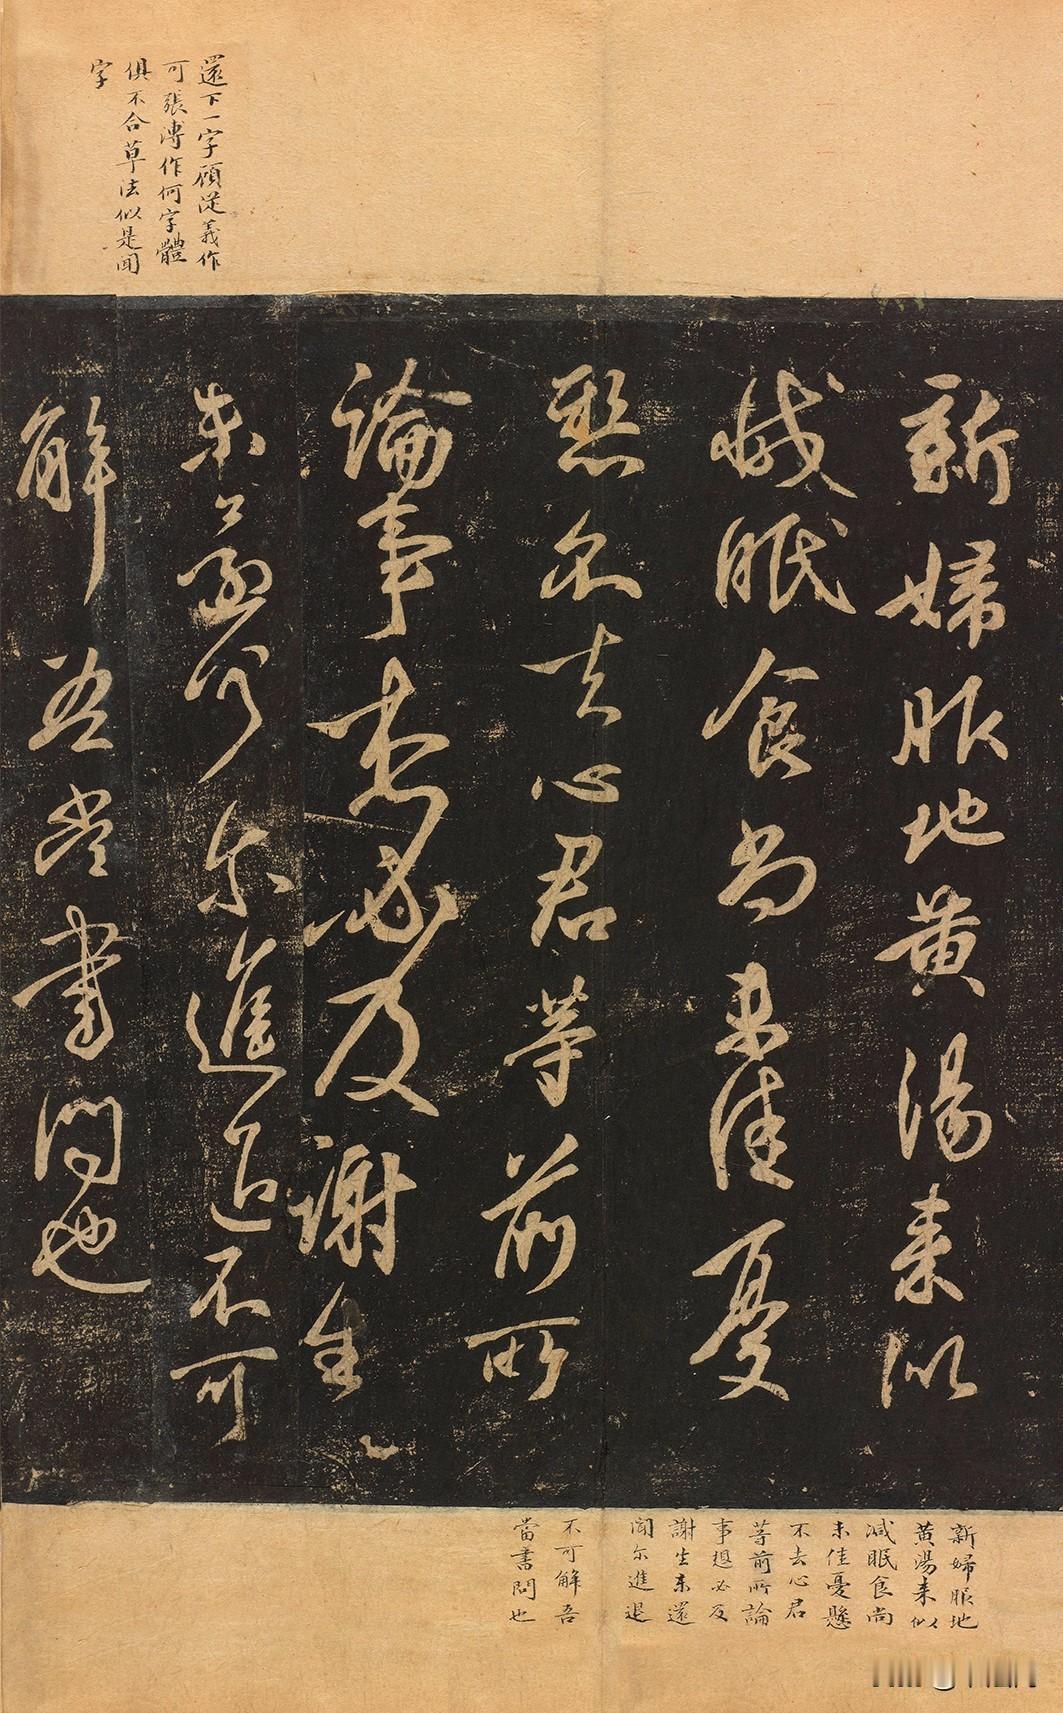 還下一字顧從義作
可張溥作何字體
俱不合草法似是聞
字
新婦服地黄湯来似
減眠食尚未佳憂
懸不去心君等前所
論事想必及謝生
未還尓進退不可
解吾當書問也
新婦服地
黄湯来似
減眠食尚
未佳憂懸
不去心君
等前所論
事想必及
謝生未還
聞尓進退
不可解吾
當書問也